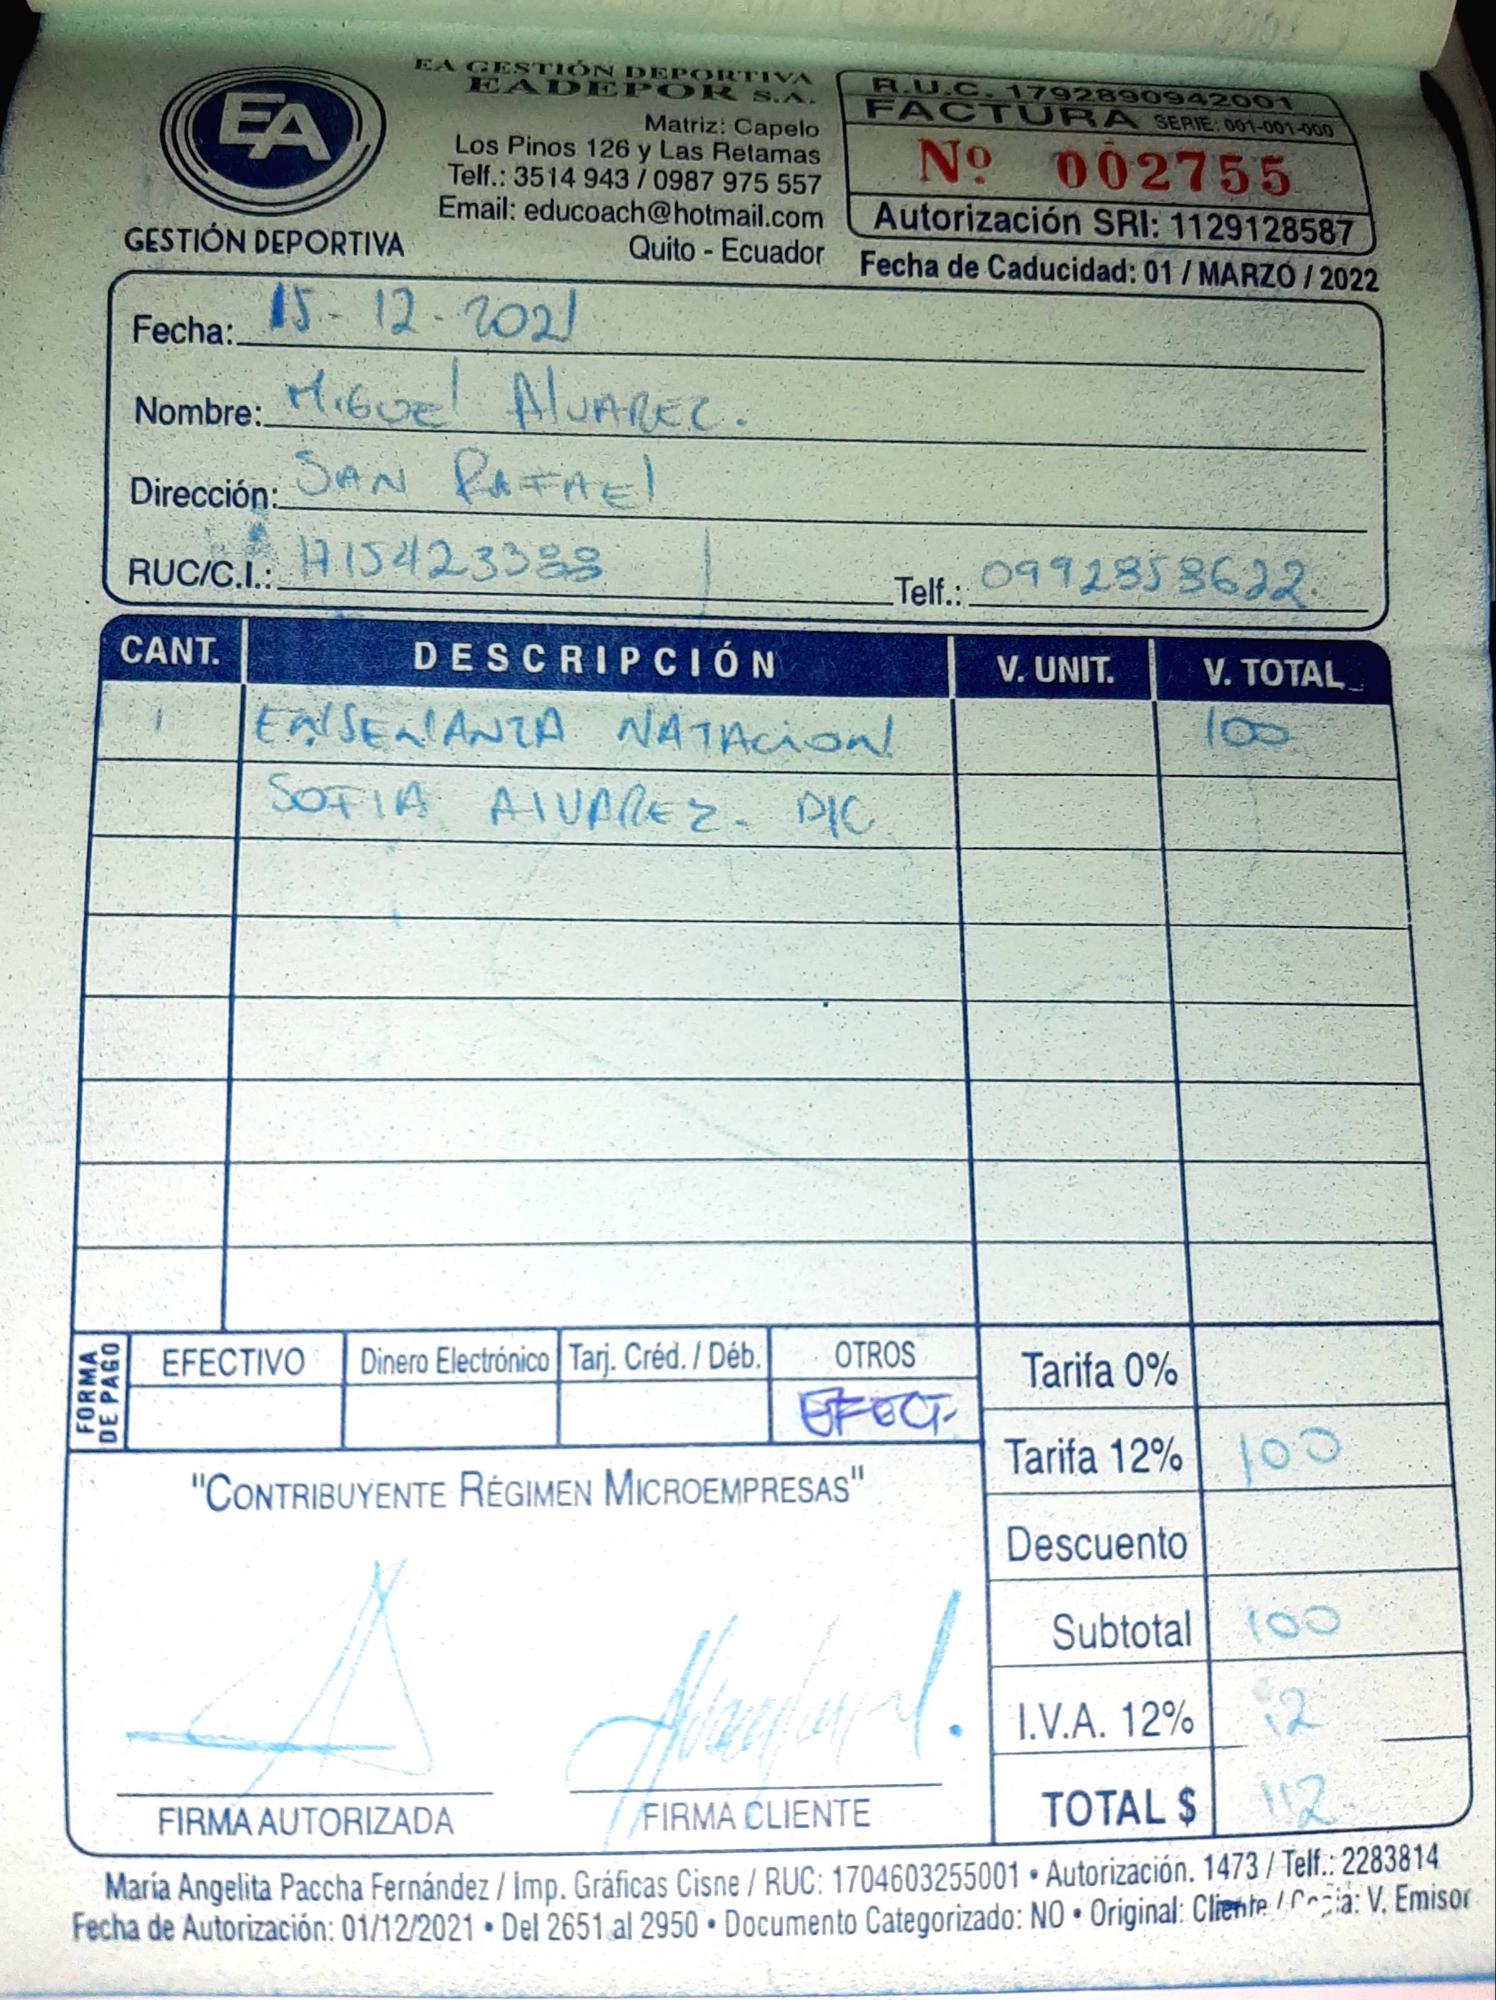 EA GESTIÓN DEPORTIVA
EADEPOR S.A.
Matriz: Capelo
Los Pinos 126 y Las Retamas
Telf.: 3514 943 / 0987 975 557
Email: educoach@hotmail.com
Quito - Ecuador
EA
GESTIÓN DEPORTIVA
R.U.C. 1792890942001
FACTURA SERIE: 001-001-000
Nº 002755
Autorización SRI: 1129128587
Fecha de Caducidad: 01 / MARZO / 2022
Fecha: 15-12-2021
Nombre: Miguel Alvarez.
Dirección: SAN RAFAEl
RUC/C.I.: 1715423388 Telf.: 0992858622.
CANT. DESCRIPCIÓN V. UNIT. V. TOTAL
1 ENSEÑANZA NATACION 100
SOFIA AlVAREZ. DIC
FORMA DE PAGO
EFECTIVO Dinero Electrónico Tarj. Créd. / Déb. OTROS
EFECT.
Tarifa 0%
Tarifa 12% 100
Descuento
Subtotal 100
I.V.A. 12% 12
TOTAL $ 112
"CONTRIBUYENTE RÉGIMEN MICROEMPRESAS"
FIRMA AUTORIZADA FIRMA CLIENTE
María Angelita Paccha Fernández / Imp. Gráficas Cisne / RUC: 1704603255001 • Autorización. 1473 / Telf.: 2283814
Fecha de Autorización: 01/12/2021 • Del 2651 al 2950 • Documento Categorizado: NO • Original: Cliente / Copia: V. Emisor